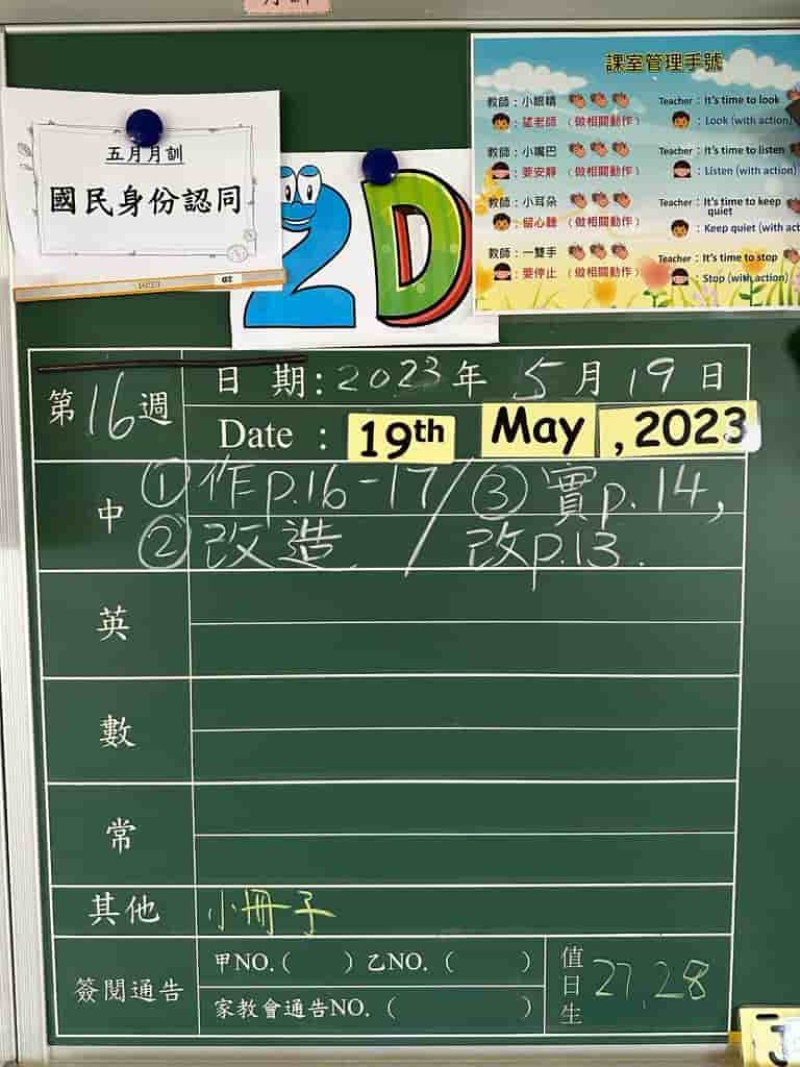 五月月訓
國民身份認同
2D
課室管理手號
教師：小眼睛
：望老師（做相關動作）
教師：小嘴巴
：要安靜（做相關動作）
教師：小耳朵
：留心聽（做相關動作）
教師：一雙手
：要停止（做相關動作）
Teacher：It's time to look
：Look (with action)
Teacher：It's time to listen
：Listen (with action)
Teacher：It's time to keep
quiet
：Keep quiet (with act
Teacher：It's time to stop
：Stop (with action)
第16週
日 期：2023年 5月 19日
Date : 19th May , 2023
中
①作p.16-17/③寶p.14,
②改造 / 改p.13.
英
數
常
其他 小冊子
簽閱通告
甲NO.( ) 乙NO. ( )
家教會通告NO. ( )
值日生 27,28